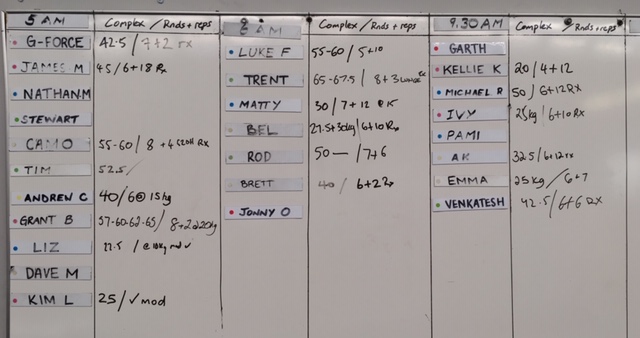 5 AM Complex / Rnds + reps
G-FORCE 42.5 / 7+2 rx
JAMES M 45 / 6+18 Rx
NATHAN.M
STEWART
CAMO 55-60 / 8 +4 Rx
TIM 52.5/
ANDREW C 40/6@15kg
GRANT B 57-60-62-65/ 8+2@20kg
LIZ 22.5 / @10kg md ✓
DAVE M
KIM L 25/✓mod
8 AM Complex / Rnds + reps
LUKE F 55-60 / 5+10
TRENT 65-67.5 / 8+3
MATTY 30 / 7+12
BEL 27.5+30kg / 6+10 Rx
ROD 50 — / 7+6
BRETT 40 / 6+22
JONNY O
9.30AM Complex / Rnds + reps
GARTH
KELLIE K 20 / 4+12
MICHAEL R 50 / 6+12RX
IVY 25kg / 6+10 RX
PAMI
AK 32.5 / 6+12rx
EMMA 25kg / 6+7
VENKATESH 42.5 / 6+6 RX